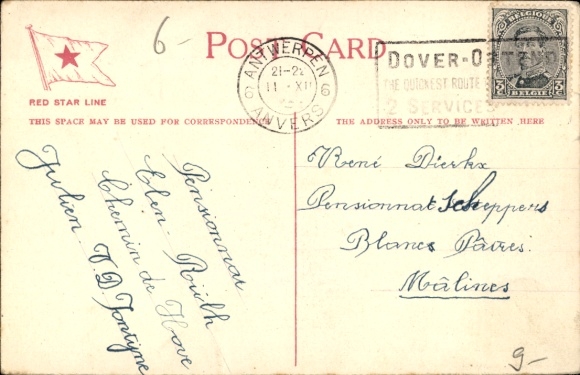 6-
POST CARD
RED STAR LINE
THIS SPACE MAY BE USED FOR CORRESPONDENCE
THE ADDRESS ONLY TO BE WRITTEN HERE
ANTWERPEN
21-22
11 XII
6 6
ANVERS
DOVER-OSTEND
THE QUICKEST ROUTE
2 SERVICES
BELGIQUE
3 3
BELGIE
Pensionnat
Eben-
Chemin de Hove
Julien
René Dierkx
Pensionnat Scheppers
Blancs
Mâlines
9-